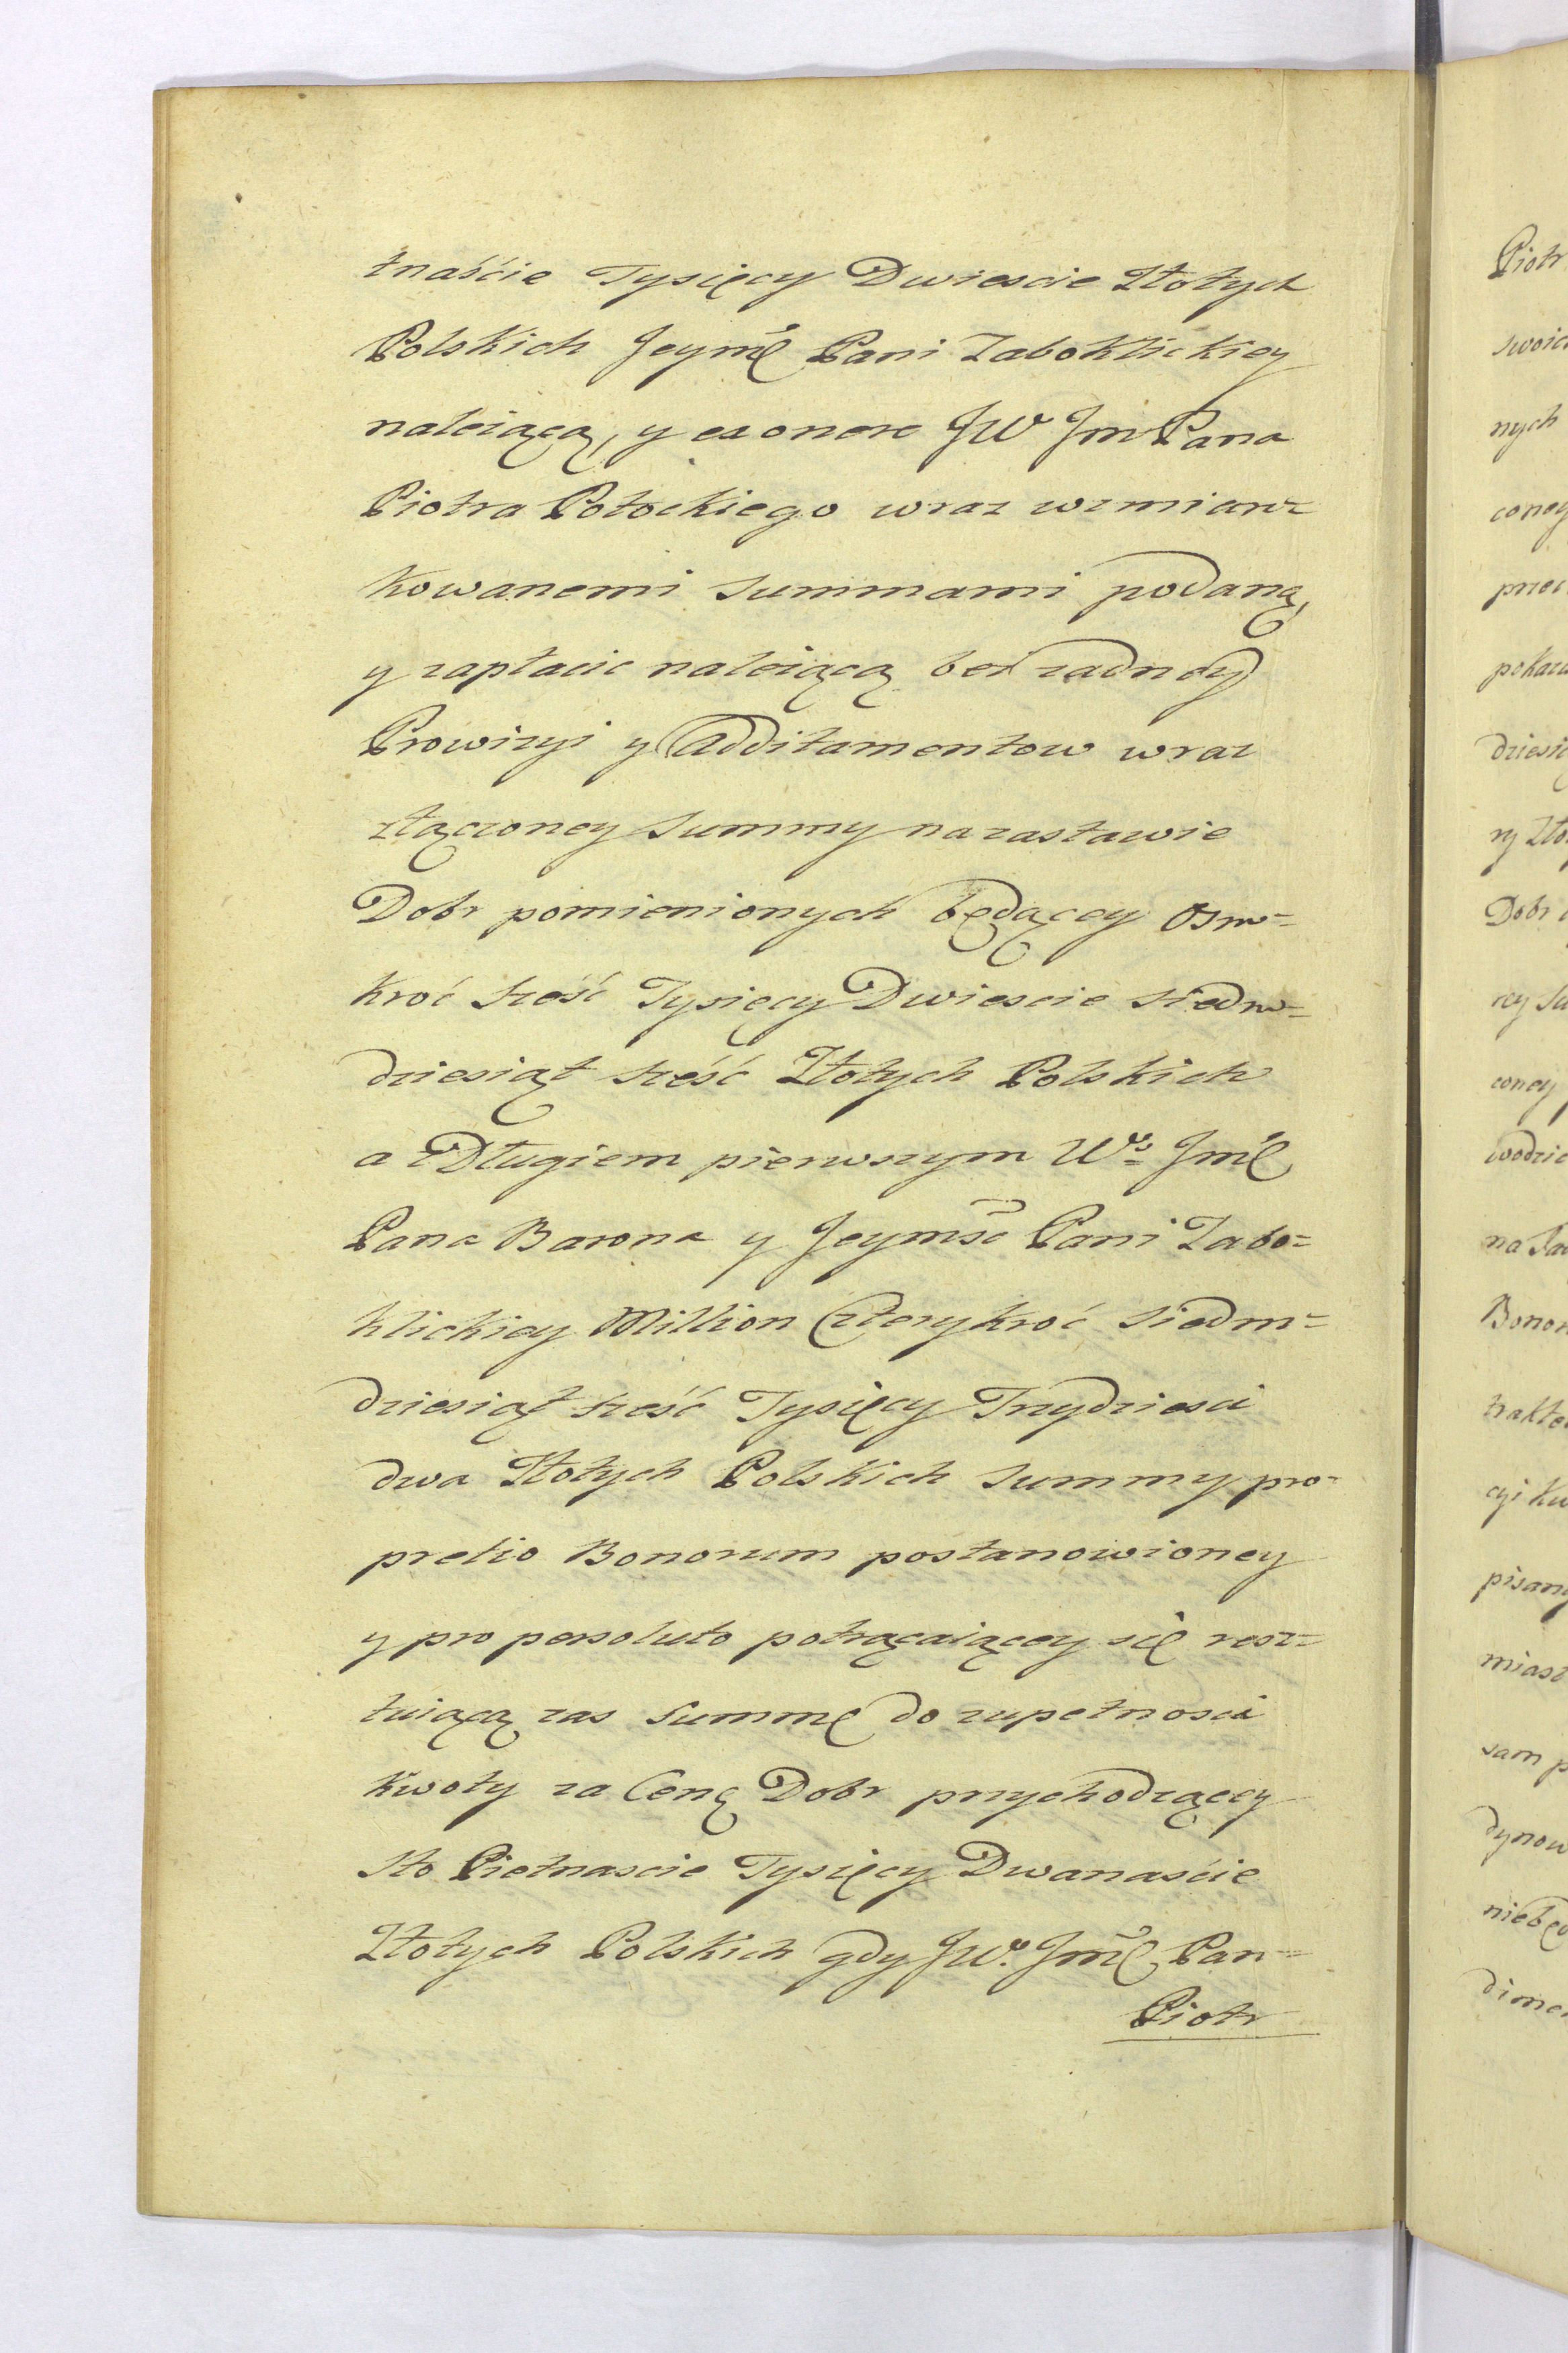 tnaście Tysięcy Dwiescie Złotych
Polskich Jeymć Pani Zaboklickiey
należącą, y ex onere JW Jm Pana
Piotra Potockiego wraz wzmian=
kowanemi Summami podaną,
y zapłacic należącą bez zadney
Prowizyi y Additamentow wraz
złączoney Summy na zastawie
Dobr pomienionych będącey Osm=
kroć sześć Tysięcy Dwiescie siedm=
dziesiąt sześć Złotych Polskich
a z Długiem pierwszym Wo Jmć
Pana Barona y Jeymść Pani Zabo=
klickiey Million Czterykroć siedm=
dziesiąt sześć Tysięcy Trzydziesci
dwa Złotych Polskich Summy pro=
pretio Bonorum postanowioney
y pro persoluto potrącaiącey się resz=
tuiącą zas Summę do zupełnosci
kwoty za Cenę Dobr przychodzącey
Sto Pietnascie Tysięcy Dwanaście
Złotych Polskich gdy JW. Jmć Pan=
Piotr
Piotr
swoich
nych
coney
pokaza
dziesią
ry Zło
Dobr
coney
wodzic
Bonor
cyi
sam
dynow